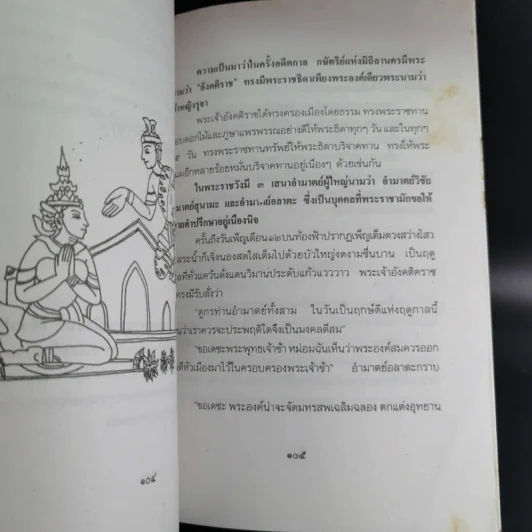 ความเป็นมาว่าในครั้งอดีตกาล กษัตริย์แห่งมิถิลานครมีพระ
นามว่า "อังคติราช" ทรงมีพระราชธิดาเพียงพระองค์เดียวพระนามว่า
หญิงรุจา
พระเจ้าอังคติราชได้ทรงครองเมืองโดยธรรม ทรงพระราชทาน
อบดอกไม้และภูษาแพรพรรณอย่างดีให้พระธิดาทุกๆ วัน และในทุกๆ
วัน ทรงพระราชทานทรัพย์ให้พระธิดาบริจาคทาน ทรงให้พระ
อีกหลายร้อยหมั่นบริจาคทานอยู่เนืองๆ ด้วยเช่นกัน
ในพระราชวังมี ๓ เสนาอำมาตย์ผู้ใหญ่นามว่า อำมาตย์วิชัย
มาตย์สุนามะ และอำมาตย์อลาตะ ซึ่งเป็นบุคคลที่พระราชามักขอให้
คำปรึกษาอยู่เนืองนิจ
ครั้นถึงวันเพ็ญเดือน๑๒บนท้องฟ้าปรากฏเพ็ญเต็มดวงสว่างไสว
สระน้ำก็เจิ่งนองสดใสเต็มไปด้วยบัวใหญ่งดงามชื่นบาน เป็นฤดู
ที่ทั่วแคว้นดั่งแดนวิมานประดับแก้วแวววาว พระเจ้าอังคติราช
ทรงมีรับสั่งว่า
"ดูกรท่านอำมาตย์ทั้งสาม ในวันเป็นฤกษ์ดีแห่งฤดูกาลนี้
ว่าเราควรจะประพฤติใดจึงเป็นมงคลดีสม"
"ขอเดชะพระพุทธเจ้าข้า หม่อมฉันเห็นว่าพระองค์สมควรออก
ตีหัวเมืองมาไว้ในครอบครองพระเจ้าข้า" อำมาตย์อลาตะกราบ
"ขอเดชะ พระองค์น่าจะจัดมหรสพเฉลิมฉลอง ตกแต่งอุทยาน
๑๐๔
๑๐๕